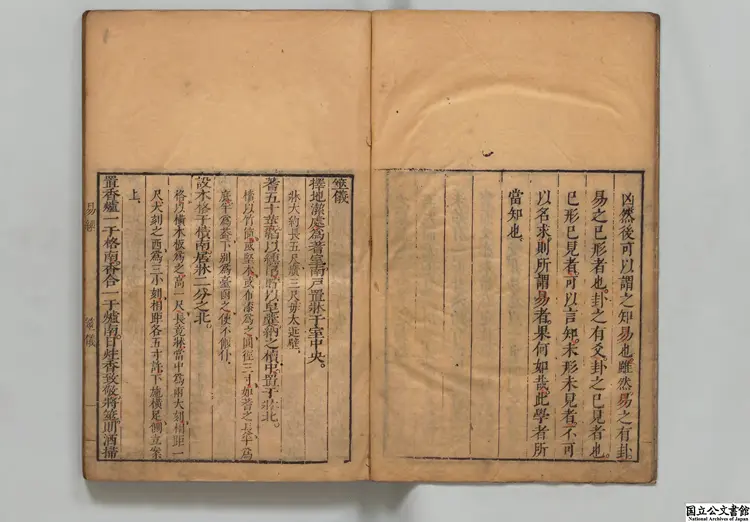 凶然後可以謂之知易也。雖然。易之有卦。
易之已形者也。卦之有爻。卦之已見者也。
已形已見者。可以言知。未形未見者。不可
以名求。則所謂易者。果何如哉。此學者所
當知也。
筮儀
擇地潔處爲蓍室南戸置牀于室中央。
牀大約長五尺廣三尺毋太近壁
蓍五十莖韜以纁帛貯以皁囊納之櫝中置于牀北。
櫝以竹筒或堅木或布漆爲之圓徑三寸如蓍之長半爲
底半爲蓋下別爲臺函之使不偃仆
設木格于櫝南居牀二分之北。
格以橫木板爲之高一尺長竟牀當中爲兩大刻相距一
尺大刻之西爲三小刻相距各五寸許下施橫足側立案
上
置香爐一于格南。香合一于爐南。日炷香致敬。將筮則洒掃
易
筮儀
国立公文書館
National Archives of Japan